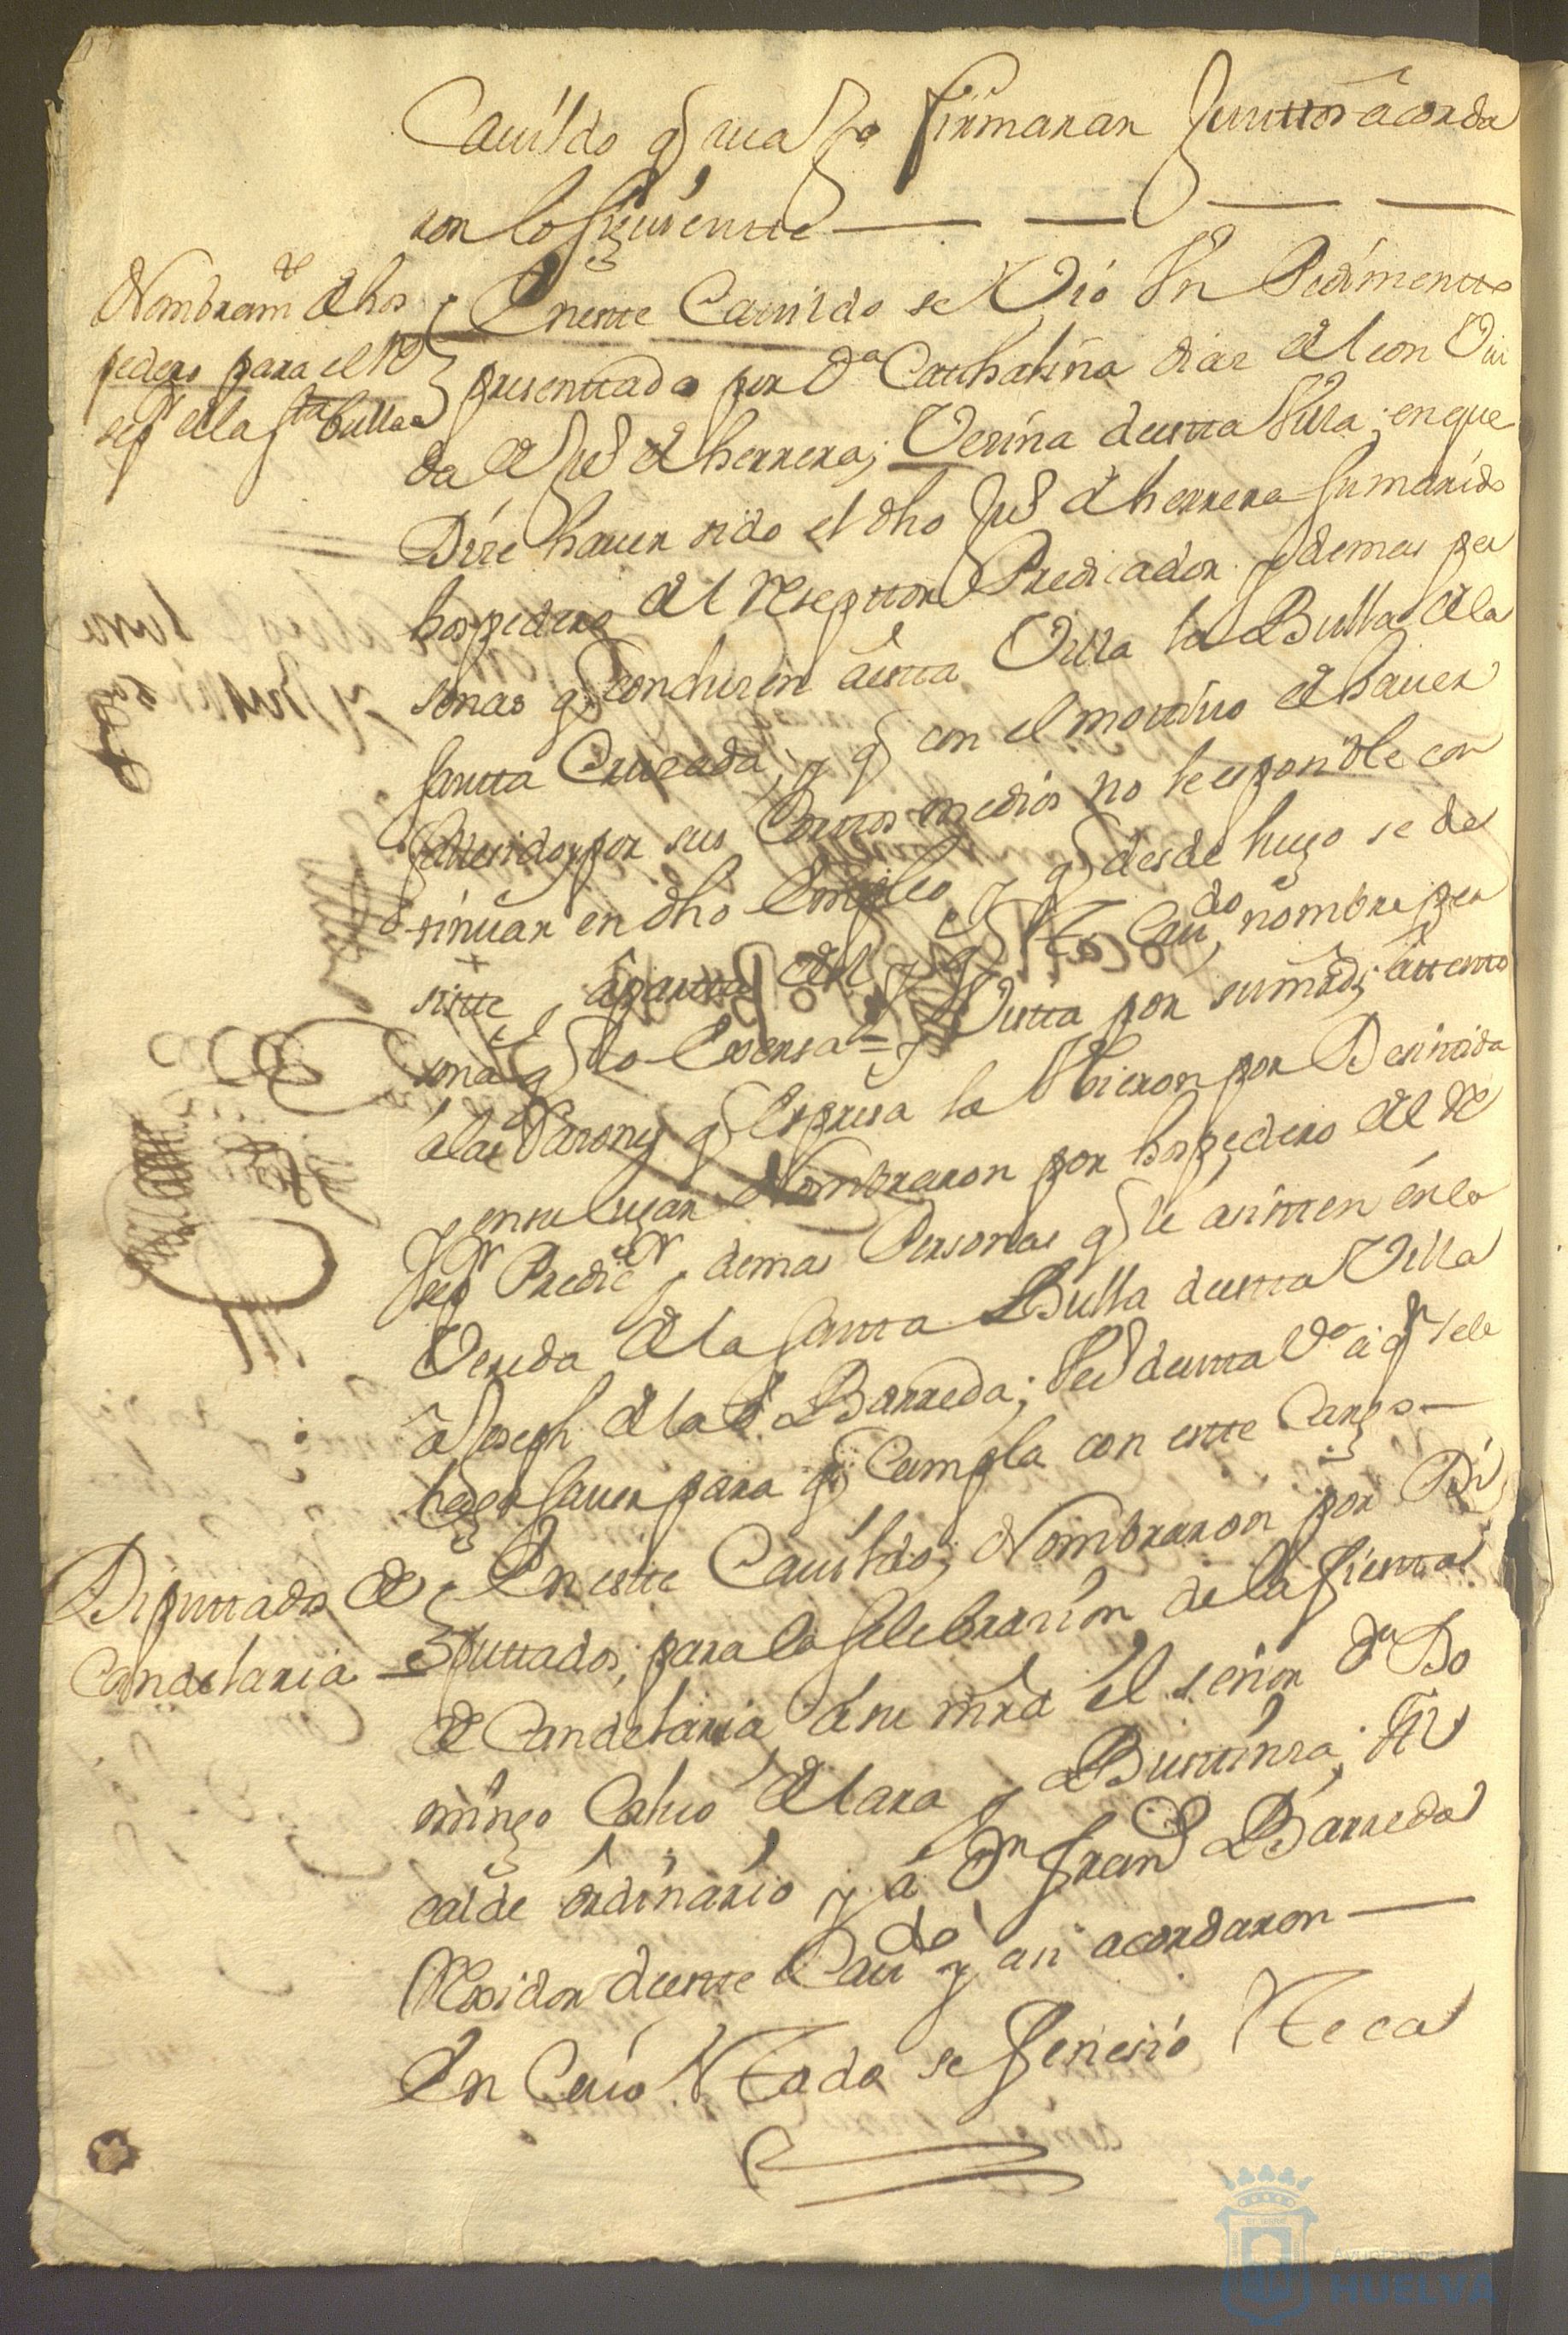 Cavildo q aca fo firmaran Junttos acorda
ron lo siguiente
Nombram.to de hos
pedero para el Re
sepr de la sta bulla
En este Cavildo se Vio Vn Pedimentto
presenttado por Da Catthalina diaz de leon Viu
da de Jud de herrera; Vezina de estta Villa; en que
Dize haver sido el dho Jud de herrera su marido
hospedero del Reseptton Predicador y demas per
sonas q conduzen a estta Villa la Bulla de la
Santta Cruzada; y q con el mottivo de haver
fallesido, por sus Corttos medios no le es posible con
tinuar en dho Empleo, y q desde luego se de
siste y apartta del y q Este Caudo nombre per
sona q lo Exersa = y Vistta por sumrds; attento
a las Razones q Espresa la Hicieron por Desistida
y en su lugar Nombraron por hospedero del Re
sepr Predicr y demas Personas q le asisten en la
Vereda de la Santta Bulla de estta Villa
a Joseph de la Barreda; Vezo de estta Va a qn se le
haga saver para q Cumpla con este Cargo
Diputtados de
Candelaria
En este Cavildo; Nombraron por Di
puttados; para la selebrazion de la fiestta
de Candelaria, a su mrd el señor Dn Do
mingo Calvo de lara y Bustinza; Al
calde ordinario y a Dn Frand Barreda
Rexidor de este Caudo y asi acordaron
En Cuio Estado se fenesio Este ca
Ayuntamiento de
HUELVA